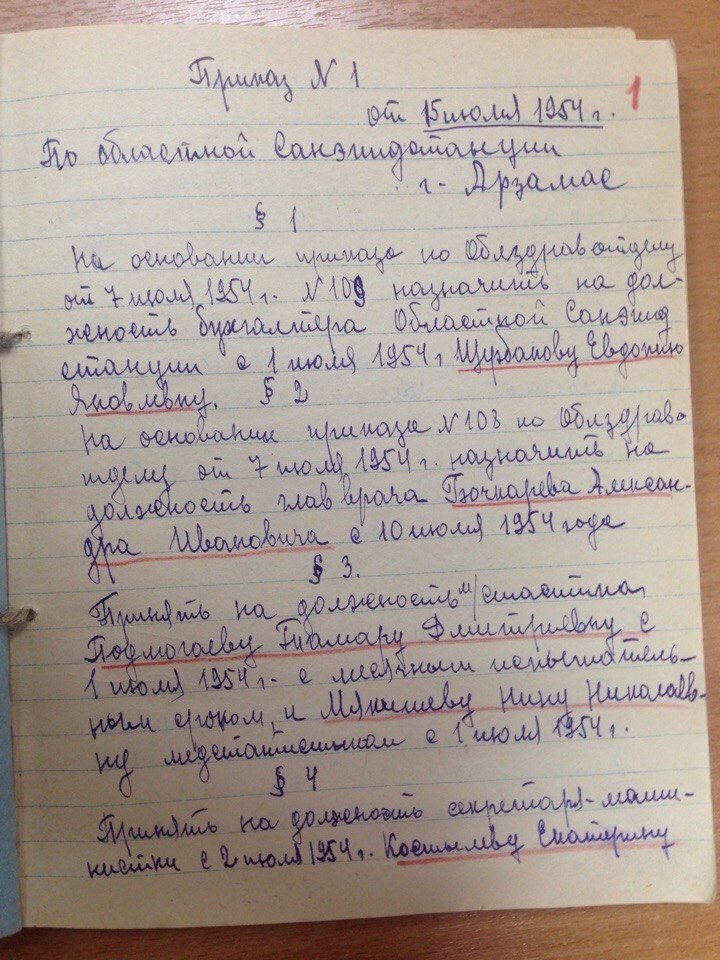 Приказ N 1
1
от 15 июля 1954 г.
По областной Санэпидстанции
г. Арзамас
§ 1
На основании приказа по Облздравотделу
от 7 июля 1954 г. N 109 назначить на дол-
жность бухгалтера Областной Санэпид
станции с 1 июля 1954 г Щербакову Евдокию
Яковлевну. § 2
На основании приказа N 108 по Облздраво
тделу от 7 июля 1954 г. назначить на
должность глав врача Бочкарева Алексан-
дра Ивановича с 10 июля 1954 года
§ 3.
Принять на должность м/статистика
Подмогаеву Тамару Дмитриевну с
1 июля 1954 г. с месячным испытатель-
ным сроком, и Мякишеву Нину Николаев-
ну медстатистиком с 1 июля 1954 г.
§ 4
Принять на должность секретаря-маши-
нистки с 2 июля 1954 г. Костылеву Екатерину